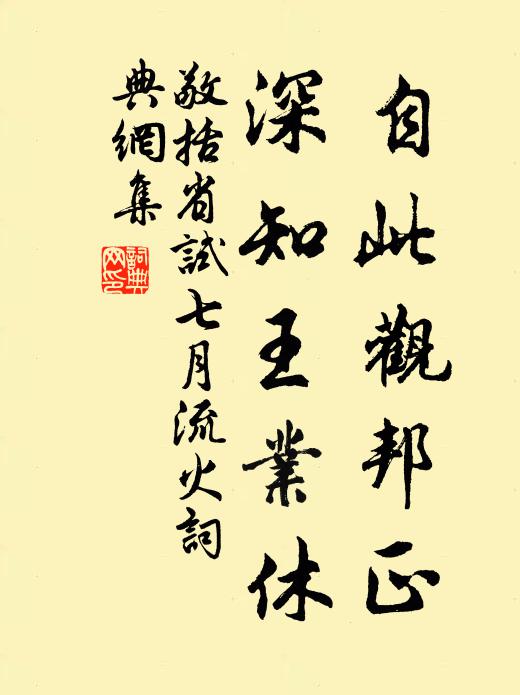 自此觀邦正
深知王業休
敬括省試七月流火詞
典網集
詞典
网印